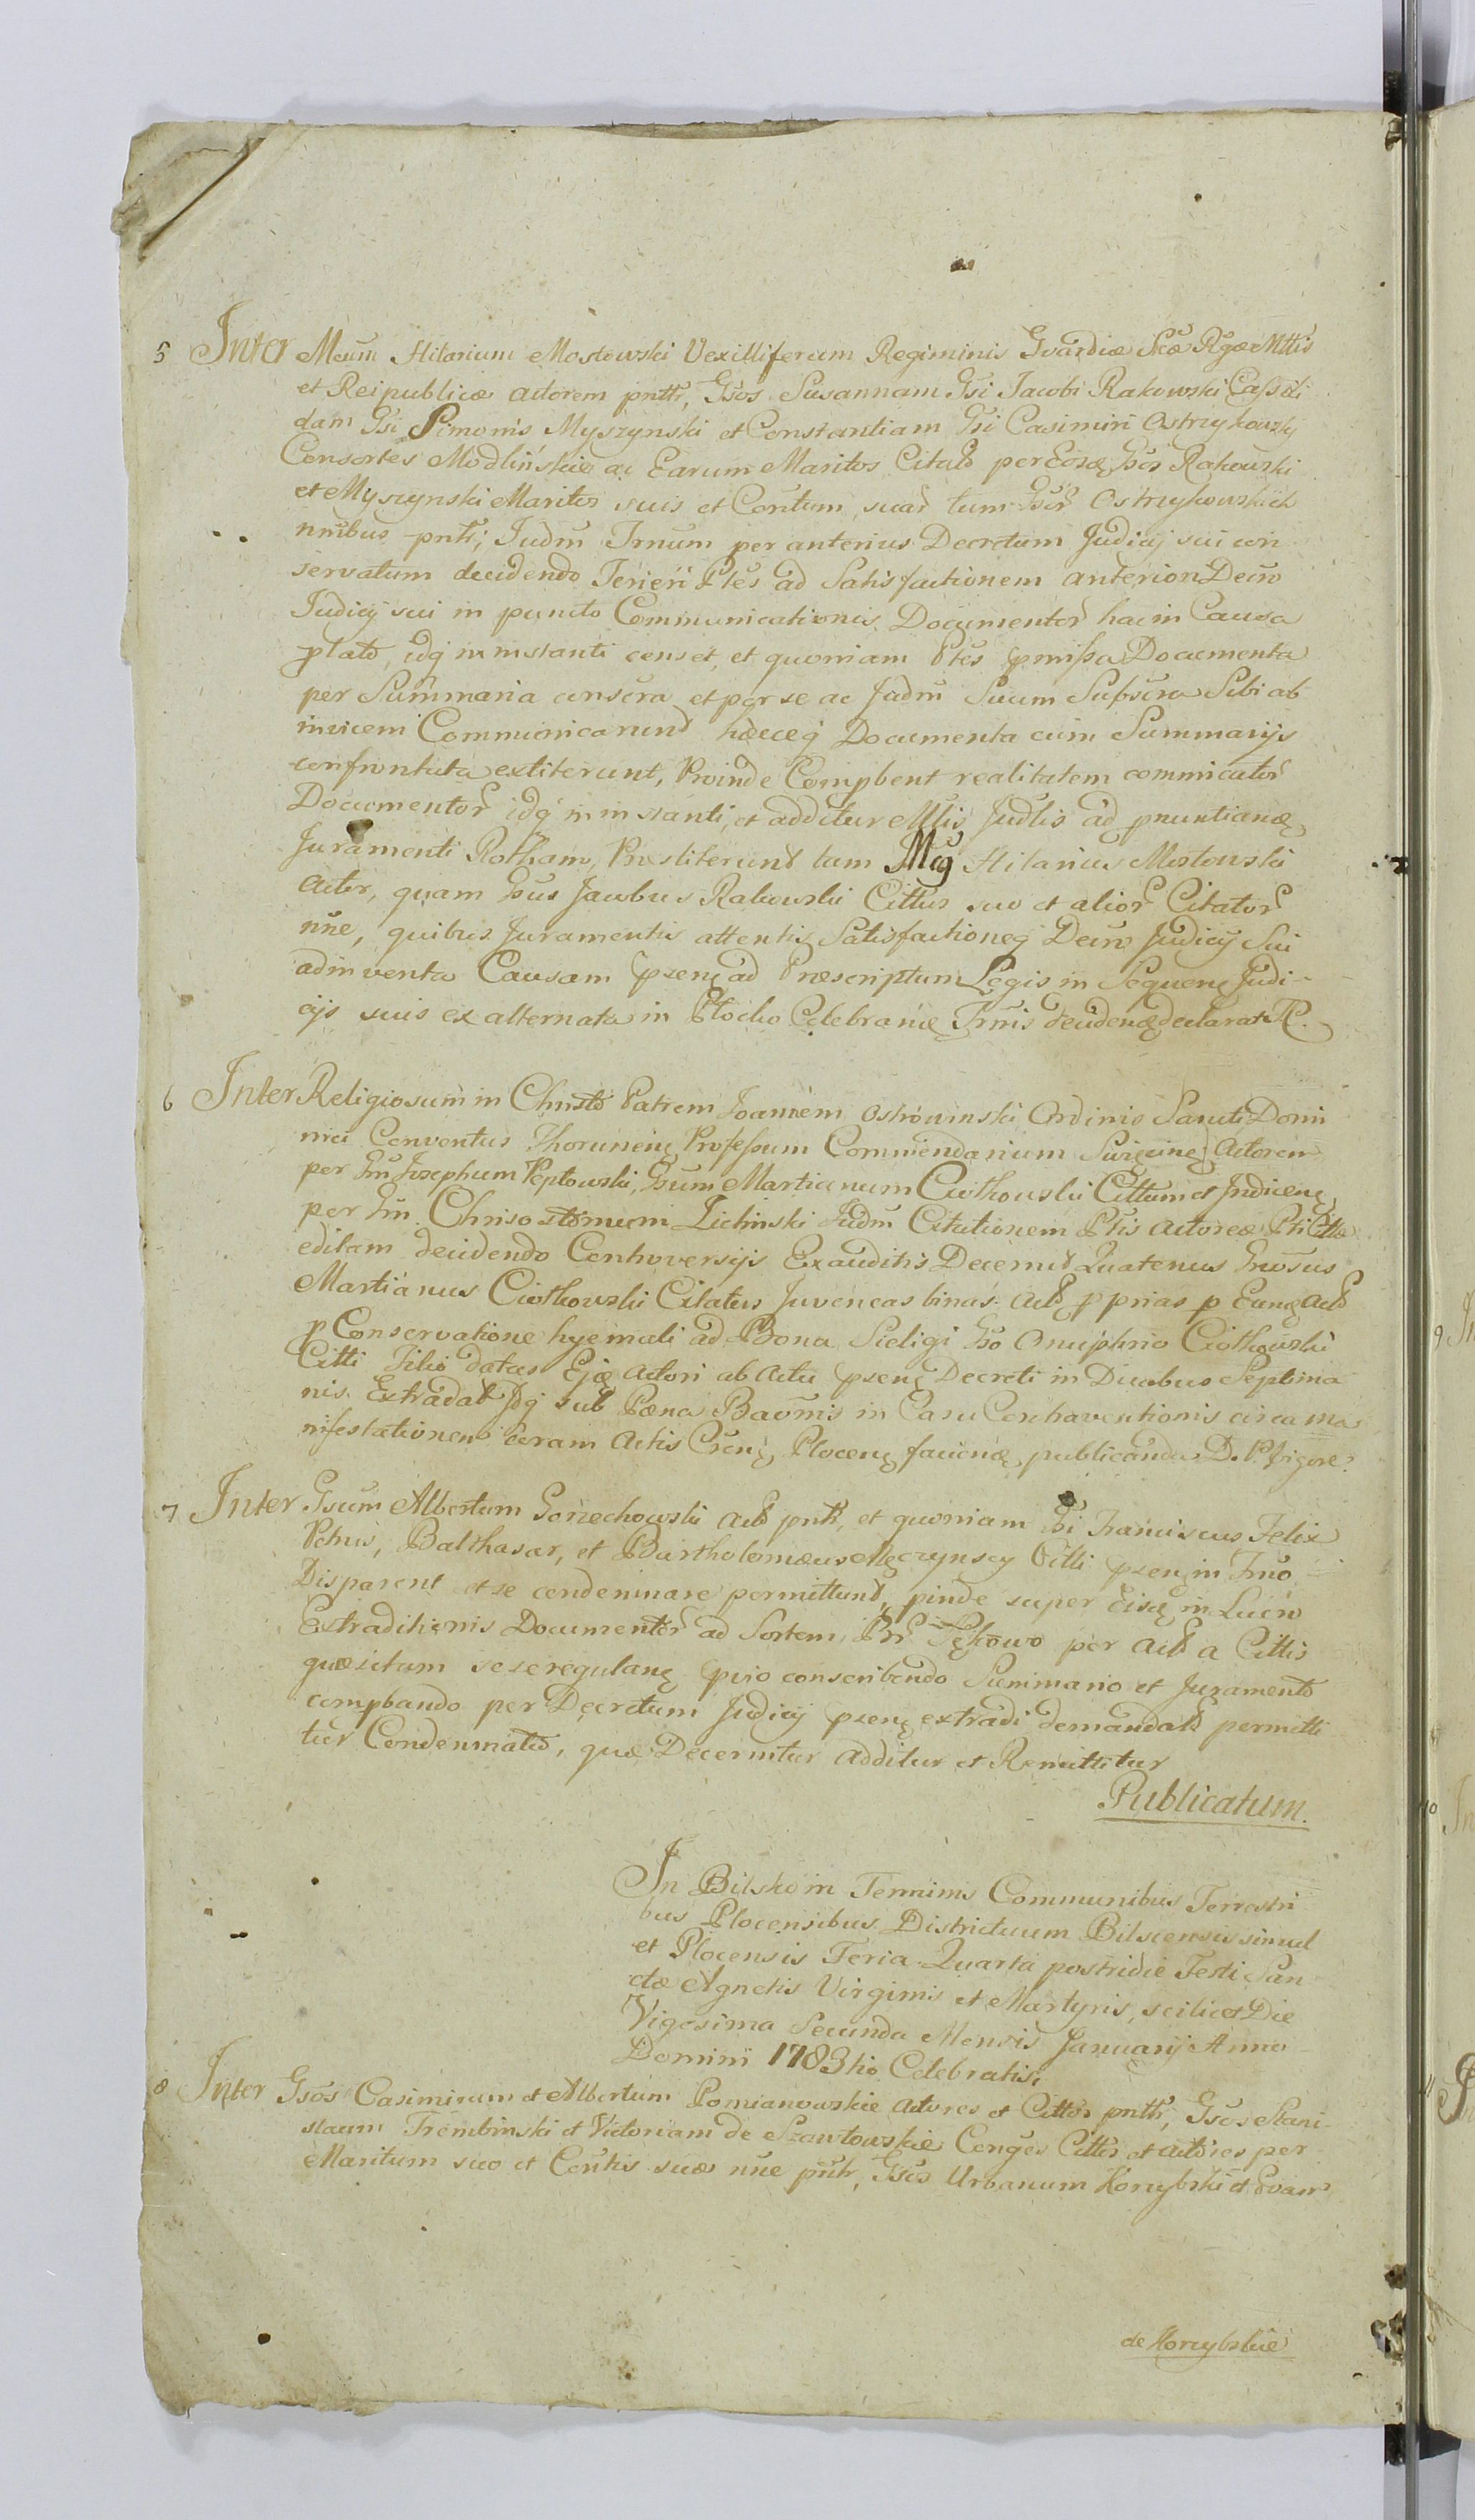 5 Inter Mcum Hilarium Mostowski Vexilliferum Regiminis Gvardiæ Scæ Rgæ Mttis
et Reipublicæ actorem pntr, Gsos Susannam Gsi Jacobi Rakowski
dam Gsi Simonis Myszynski et Constantiam Gsi Casimiri Ostrzykowski
Consortes Modlińskie ac Earum Maritos Citatos per Eosq Gsos Rakowski
et Myszynski Maritos suis et Contum suar tum Gsor Ostrzykowskich
nnibus pntr, Judm Trnum per anterius Decretum Judicij sui con
servatum decidendo Teneri Ptes ad Satisfactionem anterior Decro
Judicij sui in puncto Communicationis Documentor hac in Causa
plato, idq in instanti censet, et quoniam Ptes pmissa Documenta
per Summaria conscra et per se ac Judm Suum Subscra Sibi ab
invicem Communicarunt hæceq Documenta cum Summarijs
confrontata extiterunt, Proinde Compbent realitatem commicator
Documentor idq in instanti, et additur Mtis Judlis ad pnuntianđ
Juramenti Rotham, Præstiterunt tam Mcus Hilarius Mostowski
Actor, quam Gsus Jacobus Rakowski Cittus suo et alior Citator
nne, quibus Juramentis attentis Satisfactioneq Decro Judicij Sui
adinventa Causam psenę ad Præscriptum Legis in Sequenę Judi-
cijs suis ex alternata in Plocko Celebranđ Trnis decidenđ declarat
6 Inter Religiosum in Christo Patrem Joannem Ostrowinski Ordinis Sancti Domi
nici Conventus Thorunenę Professum Commendarium actorem
per Gm Josephum Peptowski, Gsum Martianum Ciotkowski Cittum et Judicenę
per Gm Chrisostomum Zielinski Judm Citationem Ptis actoreæ Pti Cittæ
editam decidendo Controversijs Exauditis Decernit Quatenus Gnrosus
Martianus Ciotkowski Citatus Juvencas binas Act pprias p Eunđ Act
p Conservatione hyemali ad Bona Sieligi Gso Onuphrio Ciotkowski
Citti Filio datas Ejđ Actori ab Actu psenę Decreti in Duabus Septima
nis Extradat Idq sub Pæna Baõnis in Casu Contraventionis circa ma
nifestationem coram Actis Plocenę facienđ publicanda D. P. Vigore.
7 Inter Gsum Albertum Gorzechowski Act pntr, et quoniam Gsi Franciscus Felix
Petrus, Balthasar, et Bartholomæus Męczynscy Citti psenę in Trno
Disparent et se condemnare permittunt, pinde super Eisđ in Lucro
Extraditionis Documentor ad Sortem Bnr Sękowo per Act a Cittis
quæsitam sese regulanę pvio conscribendo Summario et Juramento
compbando per Decretum Judicij psenę extradi demandato permitti
tur Condemnatio, quæ Decernitur additur et Remittitur
Publicatum.
In Bilsko in Terminis Communibus Terrestri
bus Plocensibus Districtuum Bilscensis simul
et Plocensis Feria Quarta postridie Festi San
ctæ Agnetis Virginis et Martyris, scilicet Die
Vigesima Secunda Mensis Januarij Anno
Domini 1783tio Celebratis.
8 Inter Gsos Casimirum et Albertum Pomianowskie actores et Cittos pntr, Gsos Stani
slaum Trembinski et Victoriam de Szawłowskie Conges Cittos et actores per
Maritum suo et Contis suæ nne pntr, Gsos Urbanum Korzybski et
de Korzybskie